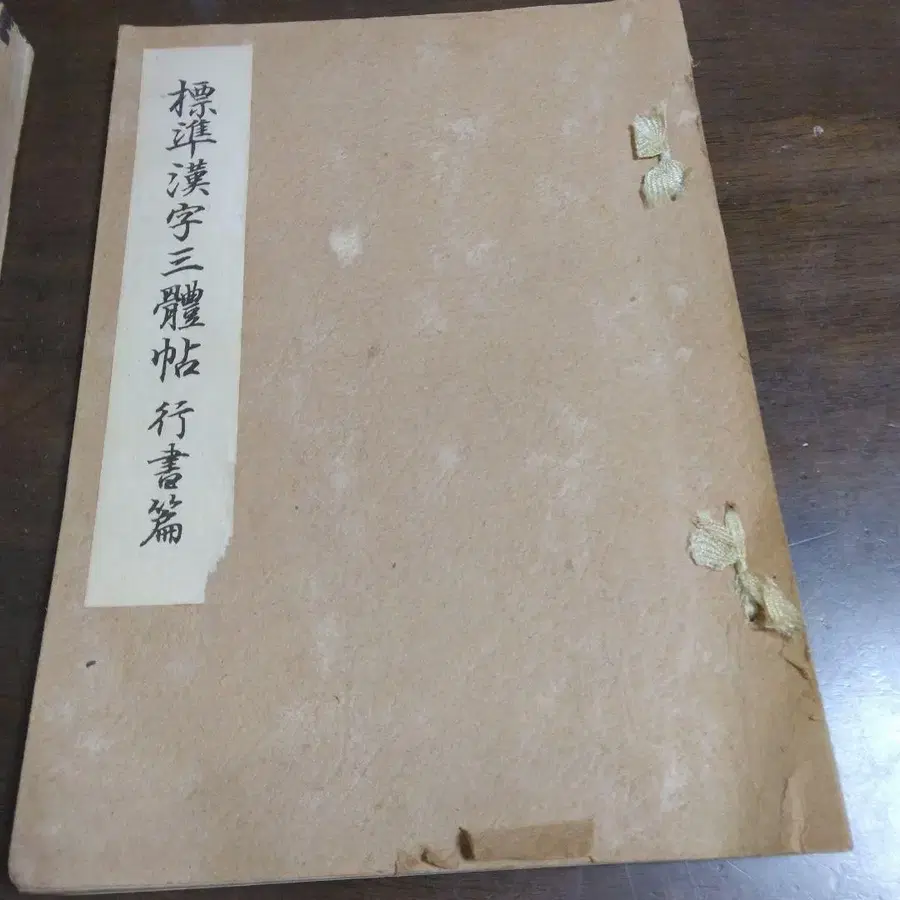 標準漢字三體帖 行書篇